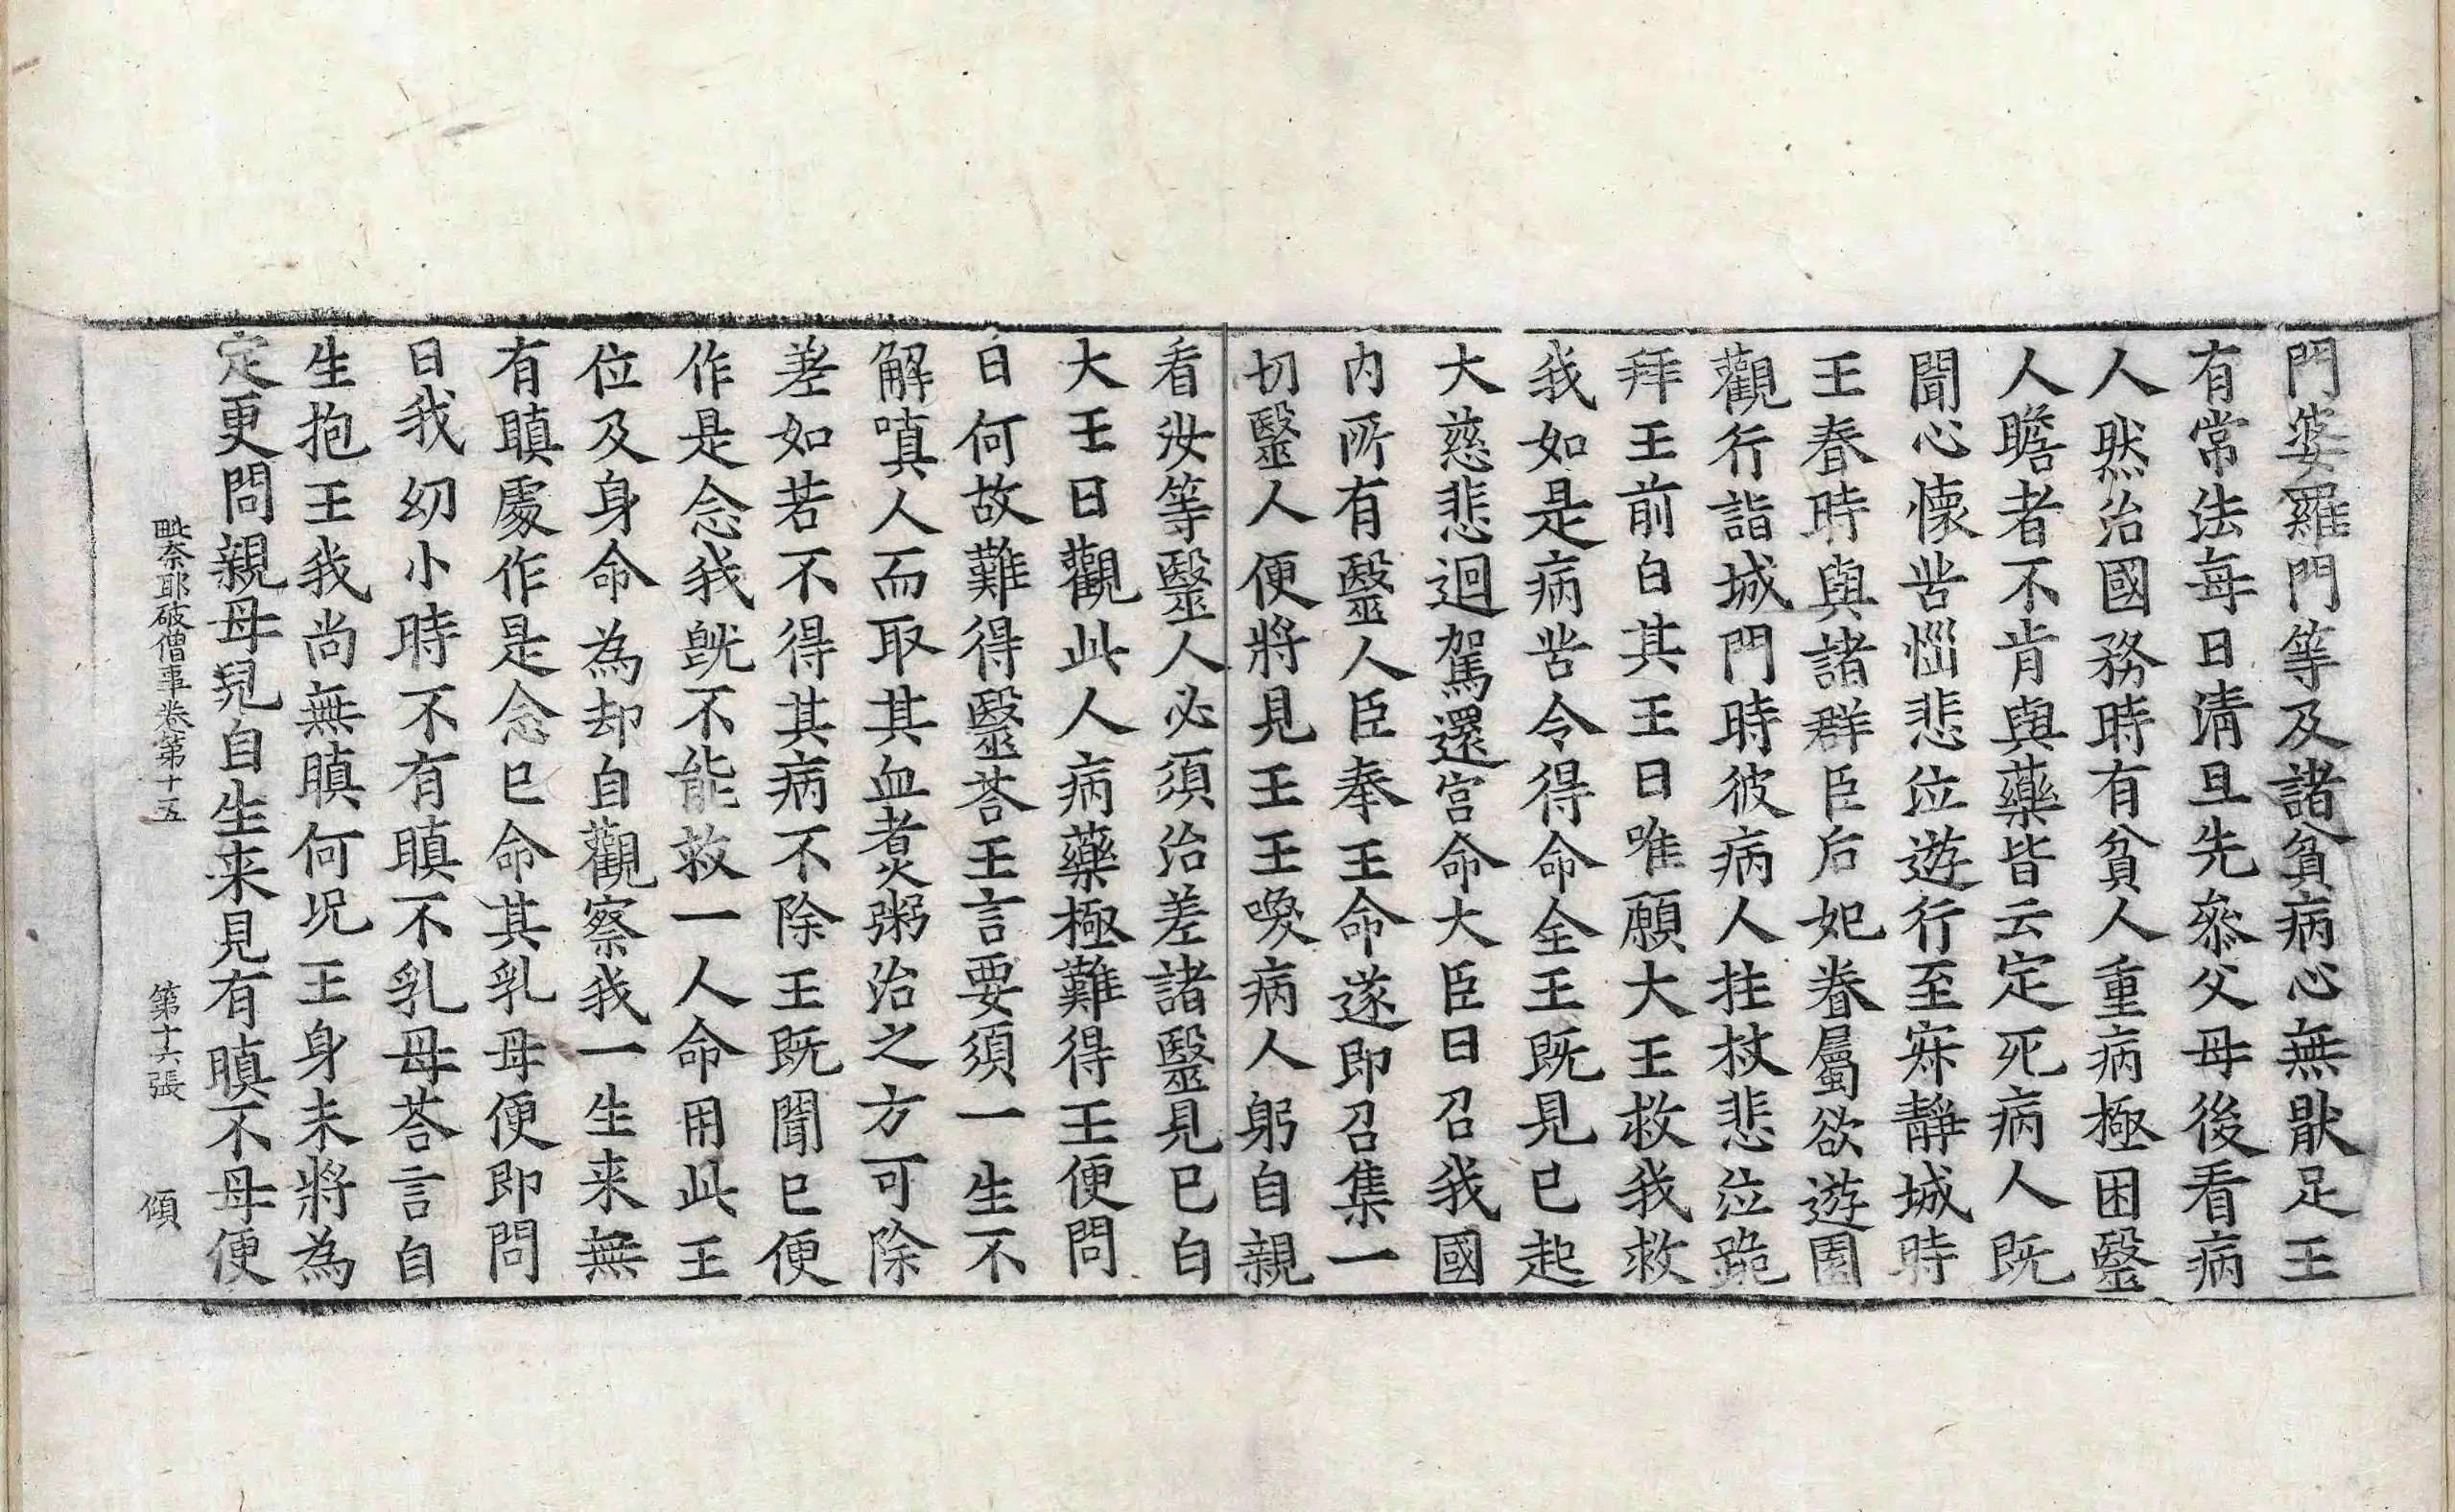 門婆羅門等及諸貧病心無猒足王
有常法每日清旦先叅父母後看病
人然治國務時有貧人重病極困毉
人瞻者不肯與藥皆云定死病人既
聞心懷苦惱悲泣遊行至寂靜城時
王春時與諸群臣后妃眷屬欲遊園
觀行詣城門時彼病人拄杖悲泣跪
拜王前白其王曰唯願大王救我救
我如是病苦令得命全王既見已起
大慈悲迴駕還宮命大臣曰召我國
內所有毉人臣奉王命遂即召集一
切毉人便將見王王喚病人躬自親
看汝等毉人必須治差諸毉見已白
大王曰觀此人病藥極難得王便問
曰何故難得毉荅王言要須一生不
解嗔人而取其血煮粥治之方可除
差如若不得其病不除王既聞已便
作是念我旣不能救一人命用此王
位及身命為却自觀察我一生来無
有瞋處作是念已命其乳母便即問
曰我幼小時不有瞋不乳母荅言自
生抱王我尚無瞋何况王身未將為
定更問親母兒自生来見有瞋不母便
毗奈耶破僧事卷第十五 第十六張 傾